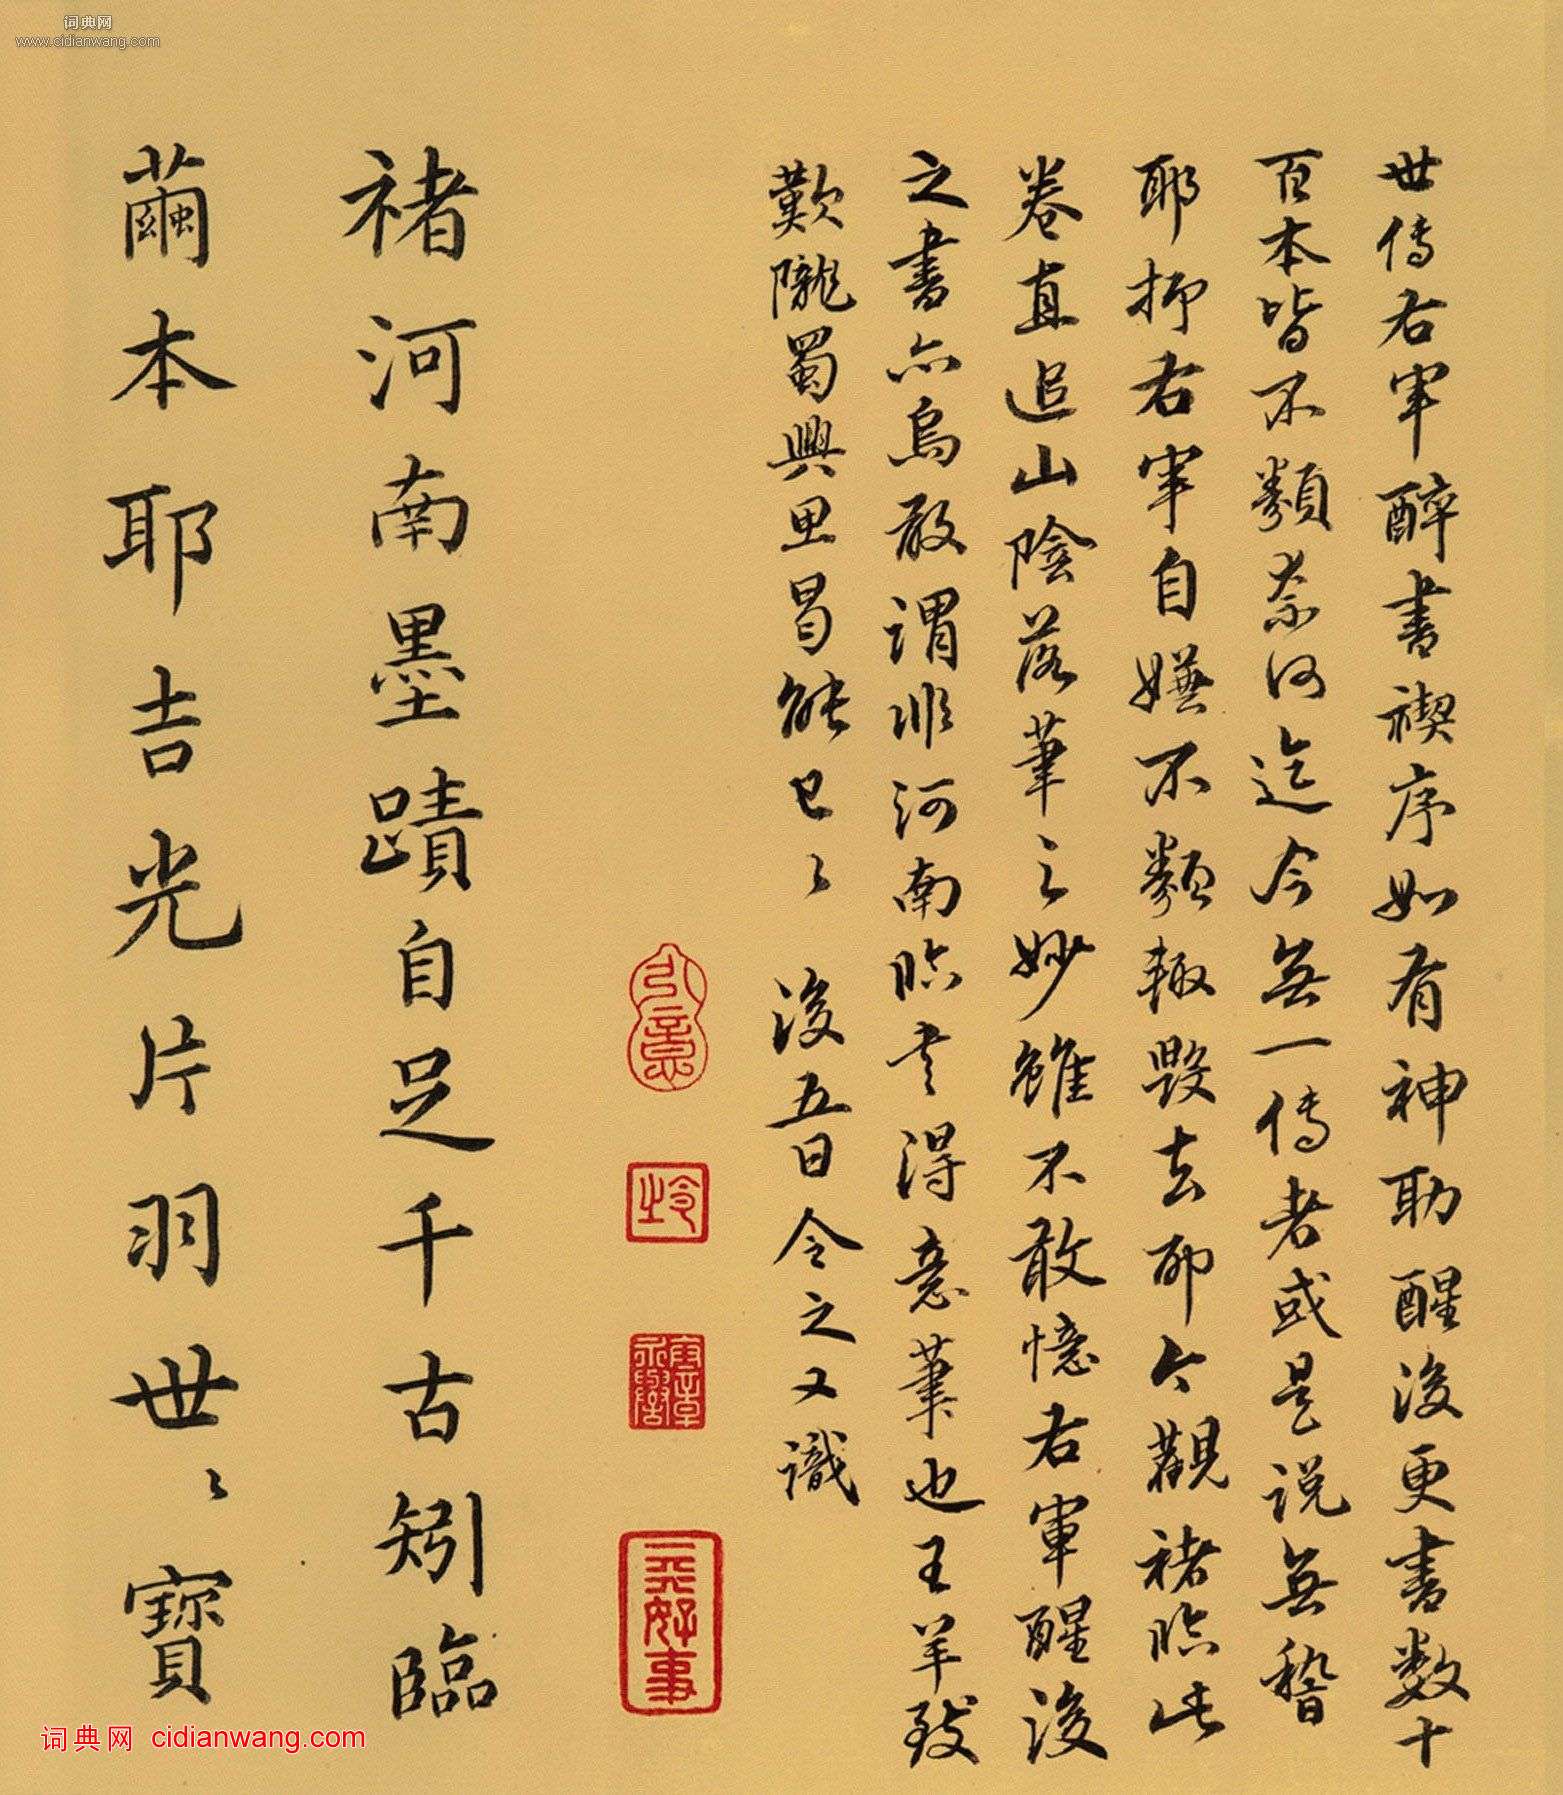 词典网
www.cidianwang.com
世傳右軍醉書禊序如有神助醒後更書數十
百本皆不類奈何迄今無一傳者或是說無稽
耶抑右軍自嫌不類輒毀去耶今觀褚臨此
卷直追山陰落筆之妙雖不敢憶右軍醒後
之書亦烏敢謂非河南臨書得意筆也王羊致
歎隴蜀興思曷能已〻 後五日令之又識
褚河南墨蹟自足千古矧臨
繭本耶吉光片羽世〻寶
词典网 cidianwang.com